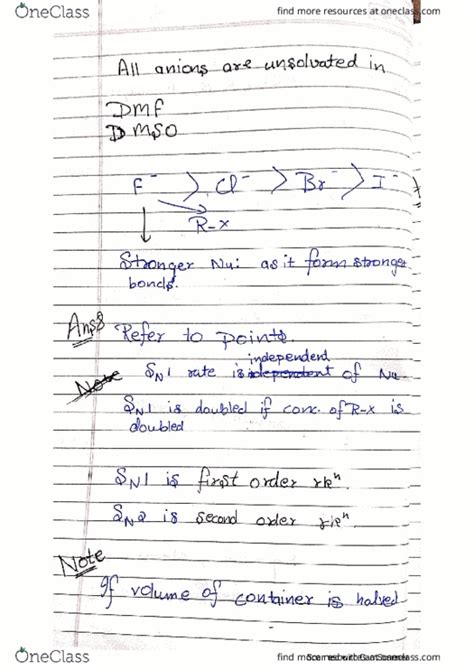 OneClass
find more resources at oneclass.com
All anions are unsolvated in
DMF
DMSO
F⁻ > Cl⁻ > Br⁻ > I⁻
R-x
Stronger Nu: as it form stronger
bonds.
Ans8 Refer to points.
independent
Note SN1 rate is independent of Nu
SN1 is doubled if conc. of R-x is
doubled
SN1 is first order rxⁿ.
SN2 is second order rxⁿ.
Note
If volume of container is halved
OneClass
oneclass.com